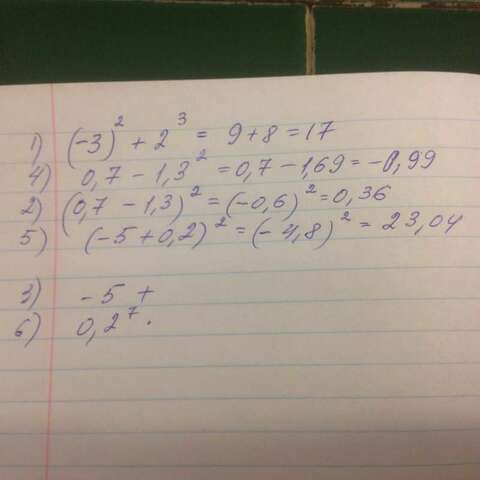 1) (-3)² + 2³ = 9+8=17
4) 0,7 - 1,3² = 0,7 - 1,69 = -0,99
2) (0,7 - 1,3)² = (-0,6)² = 0,36
5) (-5+0,2)² = (-4,8)² = 23,04
3) -5 +
6) 0,2⁷ ·